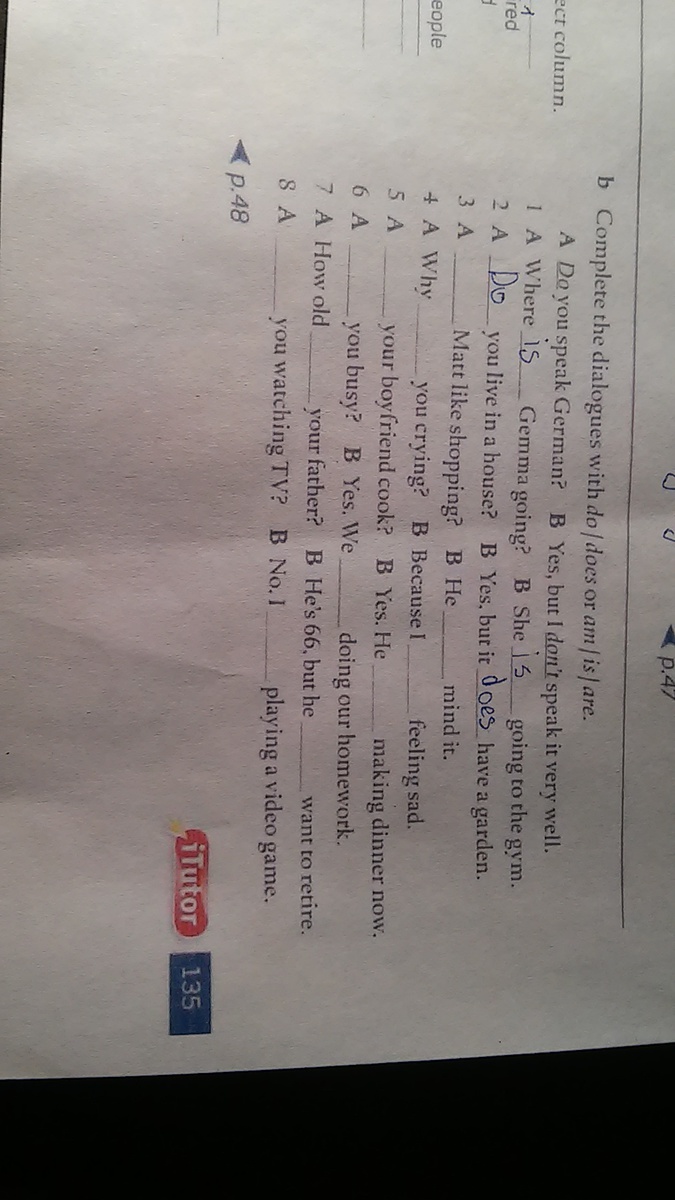 ect column.
1
red
d
eople
p.47
b Complete the dialogues with do / does or am / is / are.
A Do you speak German? B Yes, but I don't speak it very well.
1 A Where is Gemma going? B She is going to the gym.
2 A Do you live in a house? B Yes, but it does have a garden.
3 A ______ Matt like shopping? B He ______ mind it.
4 A Why ______ you crying? B Because I ______ feeling sad.
5 A ______ your boyfriend cook? B Yes. He ______ making dinner now.
6 A ______ you busy? B Yes. We ______ doing our homework.
7 A How old ______ your father? B He's 66, but he ______ want to retire.
8 A ______ you watching TV? B No. I ______ playing a video game.
p.48
iTutor 135